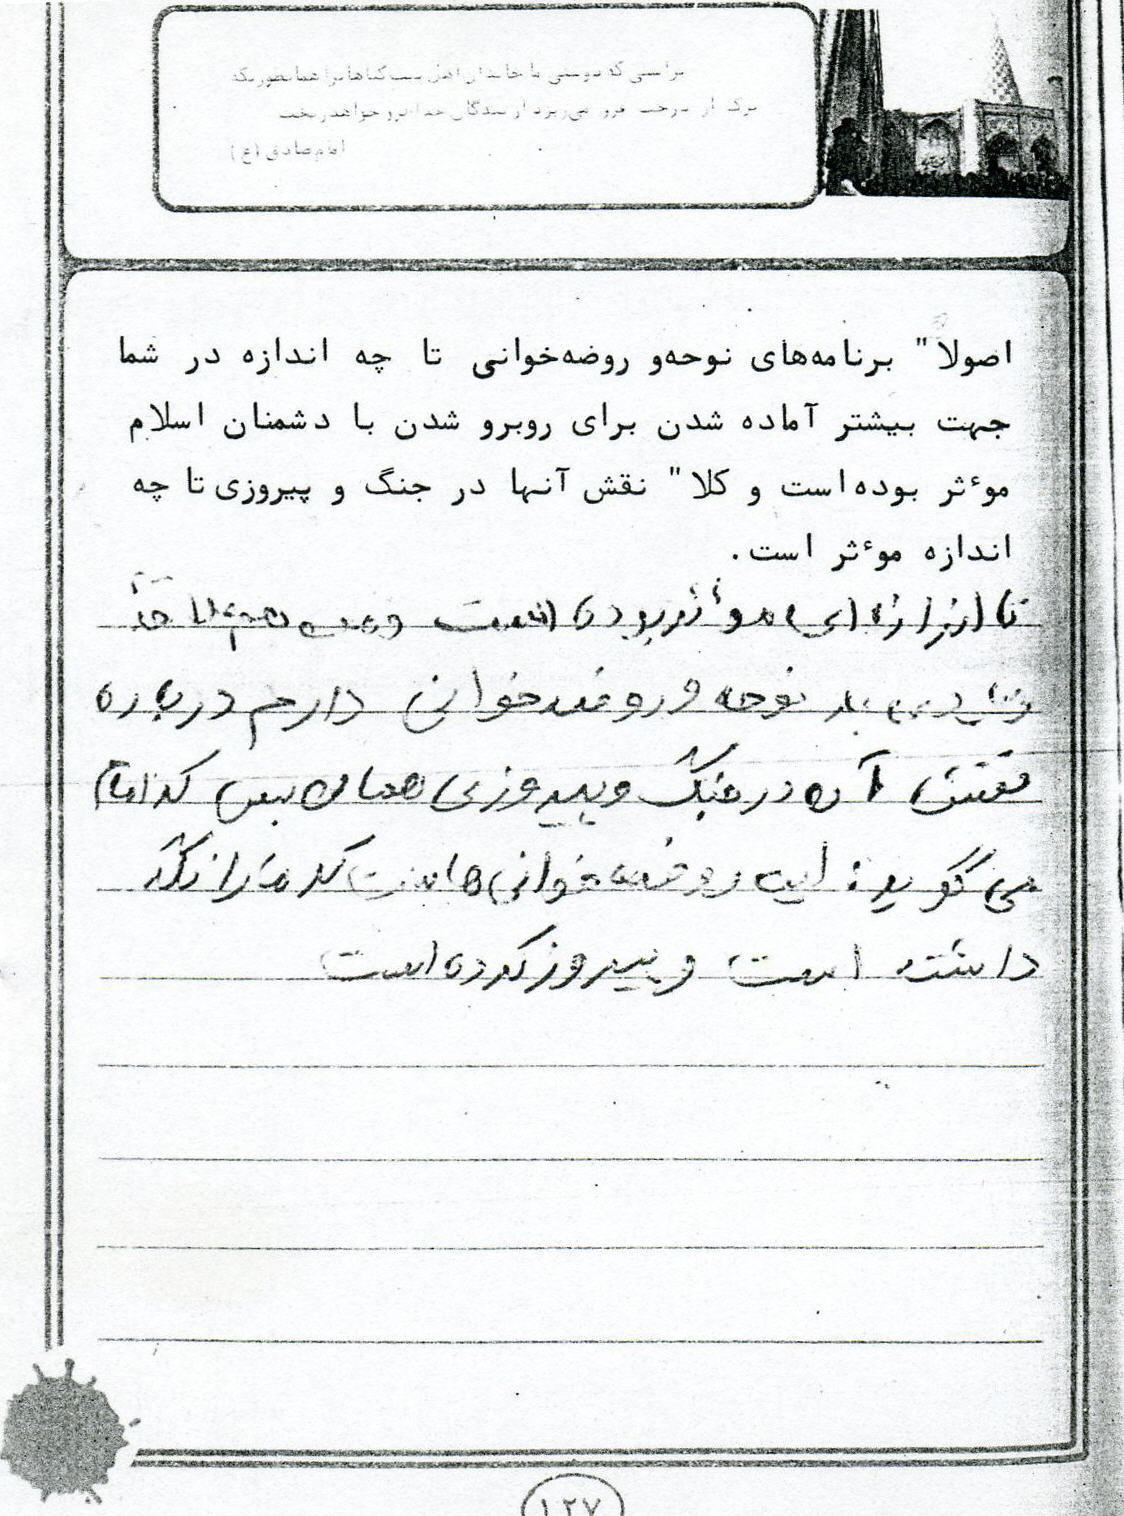 براستی که دوستی ما خاندان اهل بیت گناهان را همانطوریکه
برگ از درخت فرو می‌ریزد از بندگان خدا فرو خواهد ریخت
امام صادق (ع)
اصولا" برنامه‌های نوحه‌و روضه‌خوانی تا چه اندازه در شما
جهت بیشتر آماده شدن برای روبرو شدن با دشمنان اسلام
موءثر بوده‌است و کلا" نقش آنها در جنگ و پیروزی تا چه
اندازه موءثر است .
تا اندازه‌ای موثر بوده است و من هم
به نوحه و روضه خوانی دارم درباره
نقش آن در جنگ و پیروزی همان بس که امام
می گوید: این روضه خوانی هاست که ما را نگه
داشته است و پیروز کرده است
۱۲۷